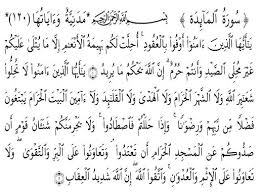 ﴿ سُورَةُ الْمَائِدَةِ ﴾ بِسْمِ اللَّهِ الرَّحْمَٰنِ الرَّحِيمِ *مَدَنِيَّةٌ وَءَايَاتُهَا (١٢٠)*
يَٰٓأَيُّهَا ٱلَّذِينَ ءَامَنُوٓا۟ أَوْفُوا۟ بِٱلْعُقُودِ ۚ أُحِلَّتْ لَكُم بَهِيمَةُ ٱلْأَنْعَٰمِ إِلَّا مَا يُتْلَىٰ عَلَيْكُمْ
غَيْرَ مُحِلِّى ٱلصَّيْدِ وَأَنتُمْ حُرُمٌ ۗ إِنَّ ٱللَّهَ يَحْكُمُ مَا يُرِيدُ ١ يَٰٓأَيُّهَا ٱلَّذِينَ ءَامَنُوا۟ لَا تُحِلُّوا۟
شَعَٰٓئِرَ ٱللَّهِ وَلَا ٱلشَّهْرَ ٱلْحَرَامَ وَلَا ٱلْهَدْىَ وَلَا ٱلْقَلَٰٓئِدَ وَلَآ ءَآمِّينَ ٱلْبَيْتَ ٱلْحَرَامَ يَبْتَغُونَ
فَضْلًا مِّن رَّبِّهِمْ وَرِضْوَٰنًا ۚ وَإِذَا حَلَلْتُمْ فَٱصْطَادُوا۟ ۚ وَلَا يَجْرِمَنَّكُمْ شَنَـَٔانُ قَوْمٍ أَن
صَدُّوكُمْ عَنِ ٱلْمَسْجِدِ ٱلْحَرَامِ أَن تَعْتَدُوا۟ ۘ وَتَعَاوَنُوا۟ عَلَى ٱلْبِرِّ وَٱلتَّقْوَىٰ ۖ وَلَا
تَعَاوَنُوا۟ عَلَى ٱلْإِثْمِ وَٱلْعُدْوَٰنِ ۚ وَٱتَّقُوا۟ ٱللَّهَ ۖ إِنَّ ٱللَّهَ شَدِيدُ ٱلْعِقَابِ ٢